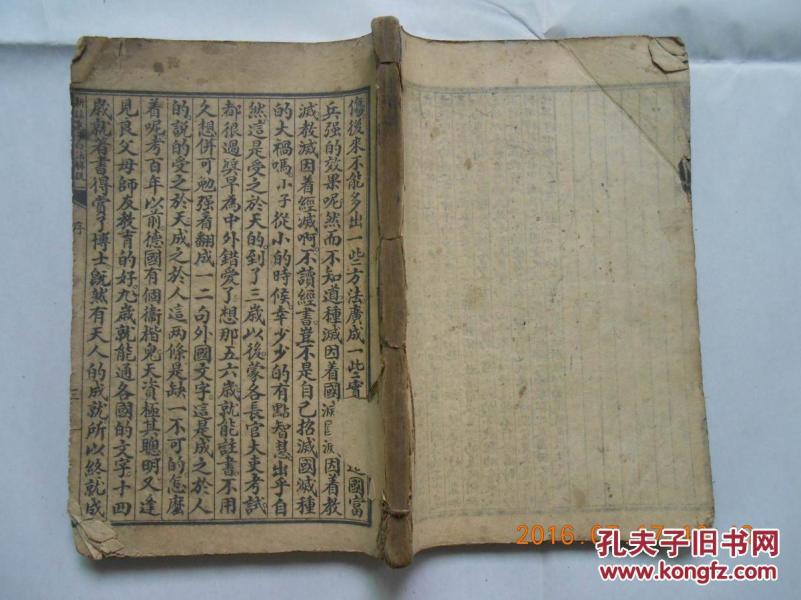 傷後來不能多出一些方法廣成一些實
國富
兵强的效果呢然而不知道種滅因着國滅因着教
滅教滅因着經滅啊不讀經書豈不是自己招滅國滅種
的大禍嗎小子從小的時候幸少少的有點智慧出乎自
然這是受之於天的到了三歲以後蒙各長官大吏考試
都很過奬早為中外錯愛了想那五六歲就能註書不用
久想併可勉强着翻成一二句外國文字這是成之於人
的說的受之於天成之於人這兩條是缺一不可的怎麽
着呢考百年以前德國有個衞楷兒天資極其聰明又逢
見良父母師友教育的好九歲就能通各國的文字十四
歲就著書得賞了博士旣然有天人的成就所以終就成
序
三
2016
孔夫子旧书网
www.kongfz.com